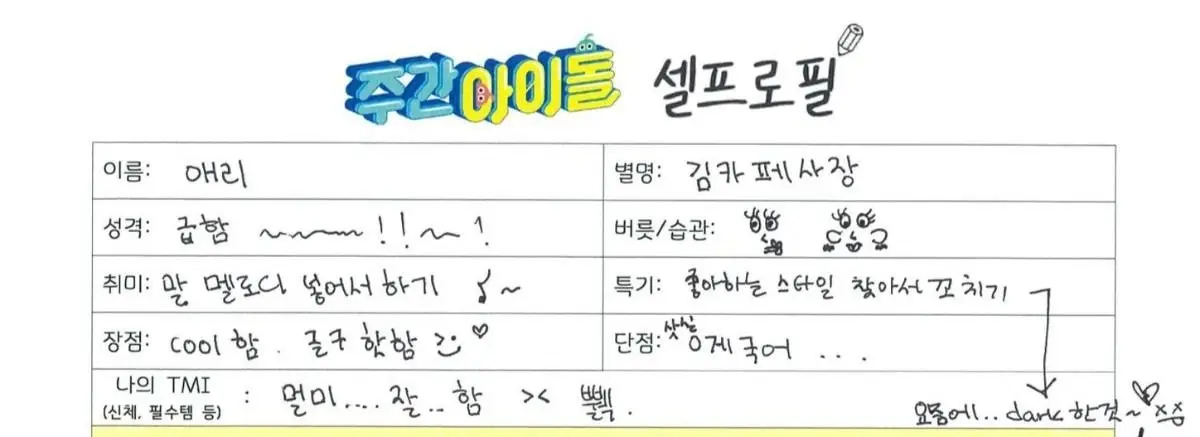 주간아이돌 셀프로필
이름: 애리 별명: 김카페사장
성격: 급함 ~~~!!~! 버릇/습관:
취미: 말 멜로디 넣어서 하기 ♪~ 특기: 좋아하는 스타일 찾아서 꼬치기
장점: cool함. 핫함 ♡ 단점: 0개국어...
나의 TMI : 멀미.... 잘.. 함 ><
(신체, 필수템 등)
요즘에.. dark한것~♡ xx